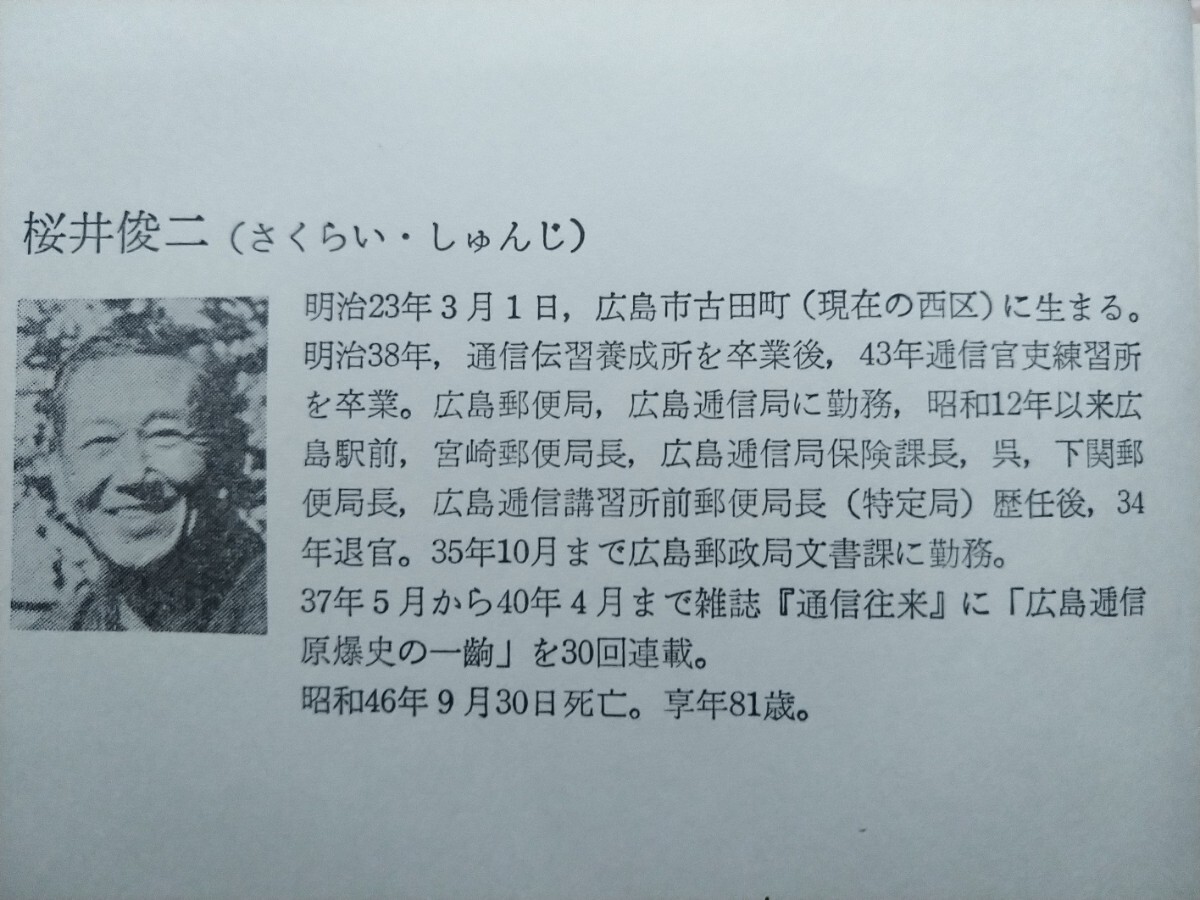 桜井俊二（さくらい・しゅんじ）
明治23年3月1日，広島市古田町（現在の西区）に生まる。
明治38年，通信伝習養成所を卒業後，43年逓信官吏練習所
を卒業。広島郵便局，広島逓信局に勤務，昭和12年以来広
島駅前，宮崎郵便局長，広島逓信局保険課長，呉，下関郵
便局長，広島逓信講習所前郵便局長（特定局）歴任後，34
年退官。35年10月まで広島郵政局文書課に勤務。
37年5月から40年4月まで雑誌『通信往来』に「広島逓信
原爆史の一齣」を30回連載。
昭和46年9月30日死亡。享年81歳。